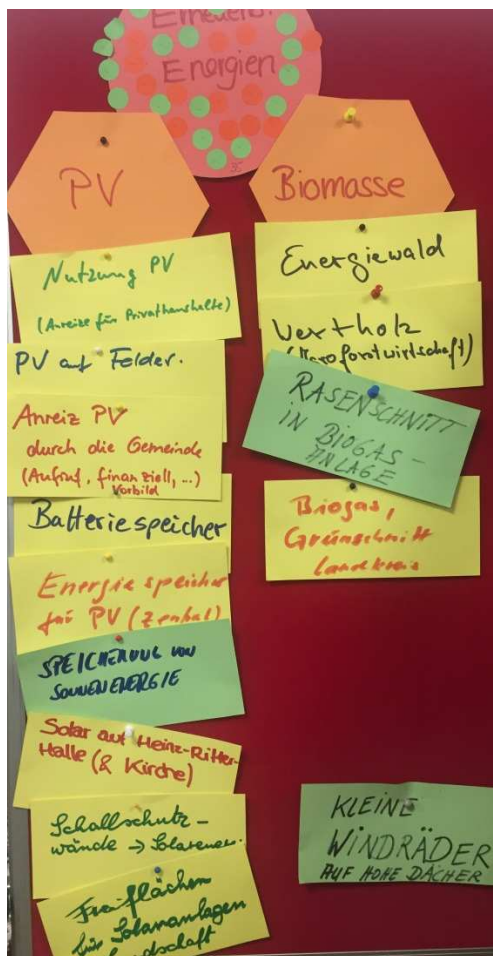 Erneuerb.
Energien
35
PV
Nutzung PV
(Anreize für Privathaushalte)
PV auf Felder.
Anreiz PV
durch die Gemeinde
(Aufruf, finanziell, ...)
Vorbild
Batteriespeicher
Energiespeicher
für PV (zentral)
SPEICHERUNG VON
SONNENENERGIE
Solar auf Heinz-Ritter-
Halle (& Kirche)
Schallschutz-
wände → Solarener.
Freiflächen
für Solaranlagen
Landschaft
Biomasse
Energiewald
Wertholz
(Agroforstwirtschaft)
RASENSCHNITT
IN BIOGAS-
ANLAGE
Biogas,
Grünschnitt
Landkreis
KLEINE
WINDRÄDER
AUF HOHE DÄCHER